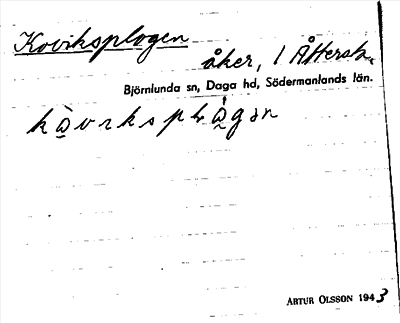 Kovriksplogen
åker, 1 Åttersta.
Björnlunda sn, Daga hd, Södermanlands län.
ARTUR OLSSON 1943